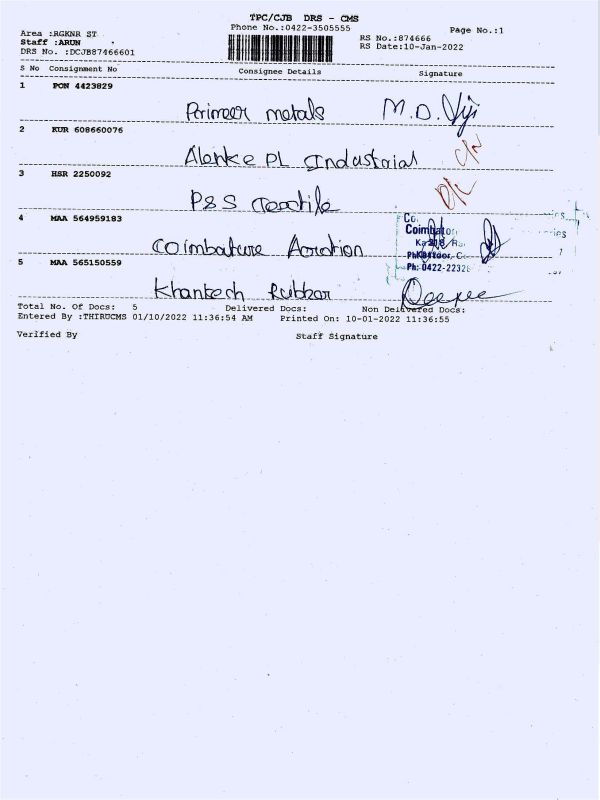 TPC/CJB DRS - CMS
Phone No.:0422-3505555 Page No.:1
Area :RGKNR ST
Staff :ARUN
DRS No. :DCJB87466601
RS No.:874666
RS Date:10-Jan-2022
S No Consignment No Consignee Details Signature
1 PON 4423829
Primeer metals M.D. Viji
2 KUR 608660076
Alenke PL Industrial
3 HSR 2250092
P&S Textile D/L
4 MAA 564959183
Coimbature Aeration
Coimbator
Ph: 0422-2232
5 MAA 565150559
Khantech Rubber Deepee
Total No. Of Docs: 5 Delivered Docs: Non Delivered Docs:
Entered By :THIRUCMS 01/10/2022 11:36:54 AM Printed On: 10-01-2022 11:36:55
Verified By Staff Signature